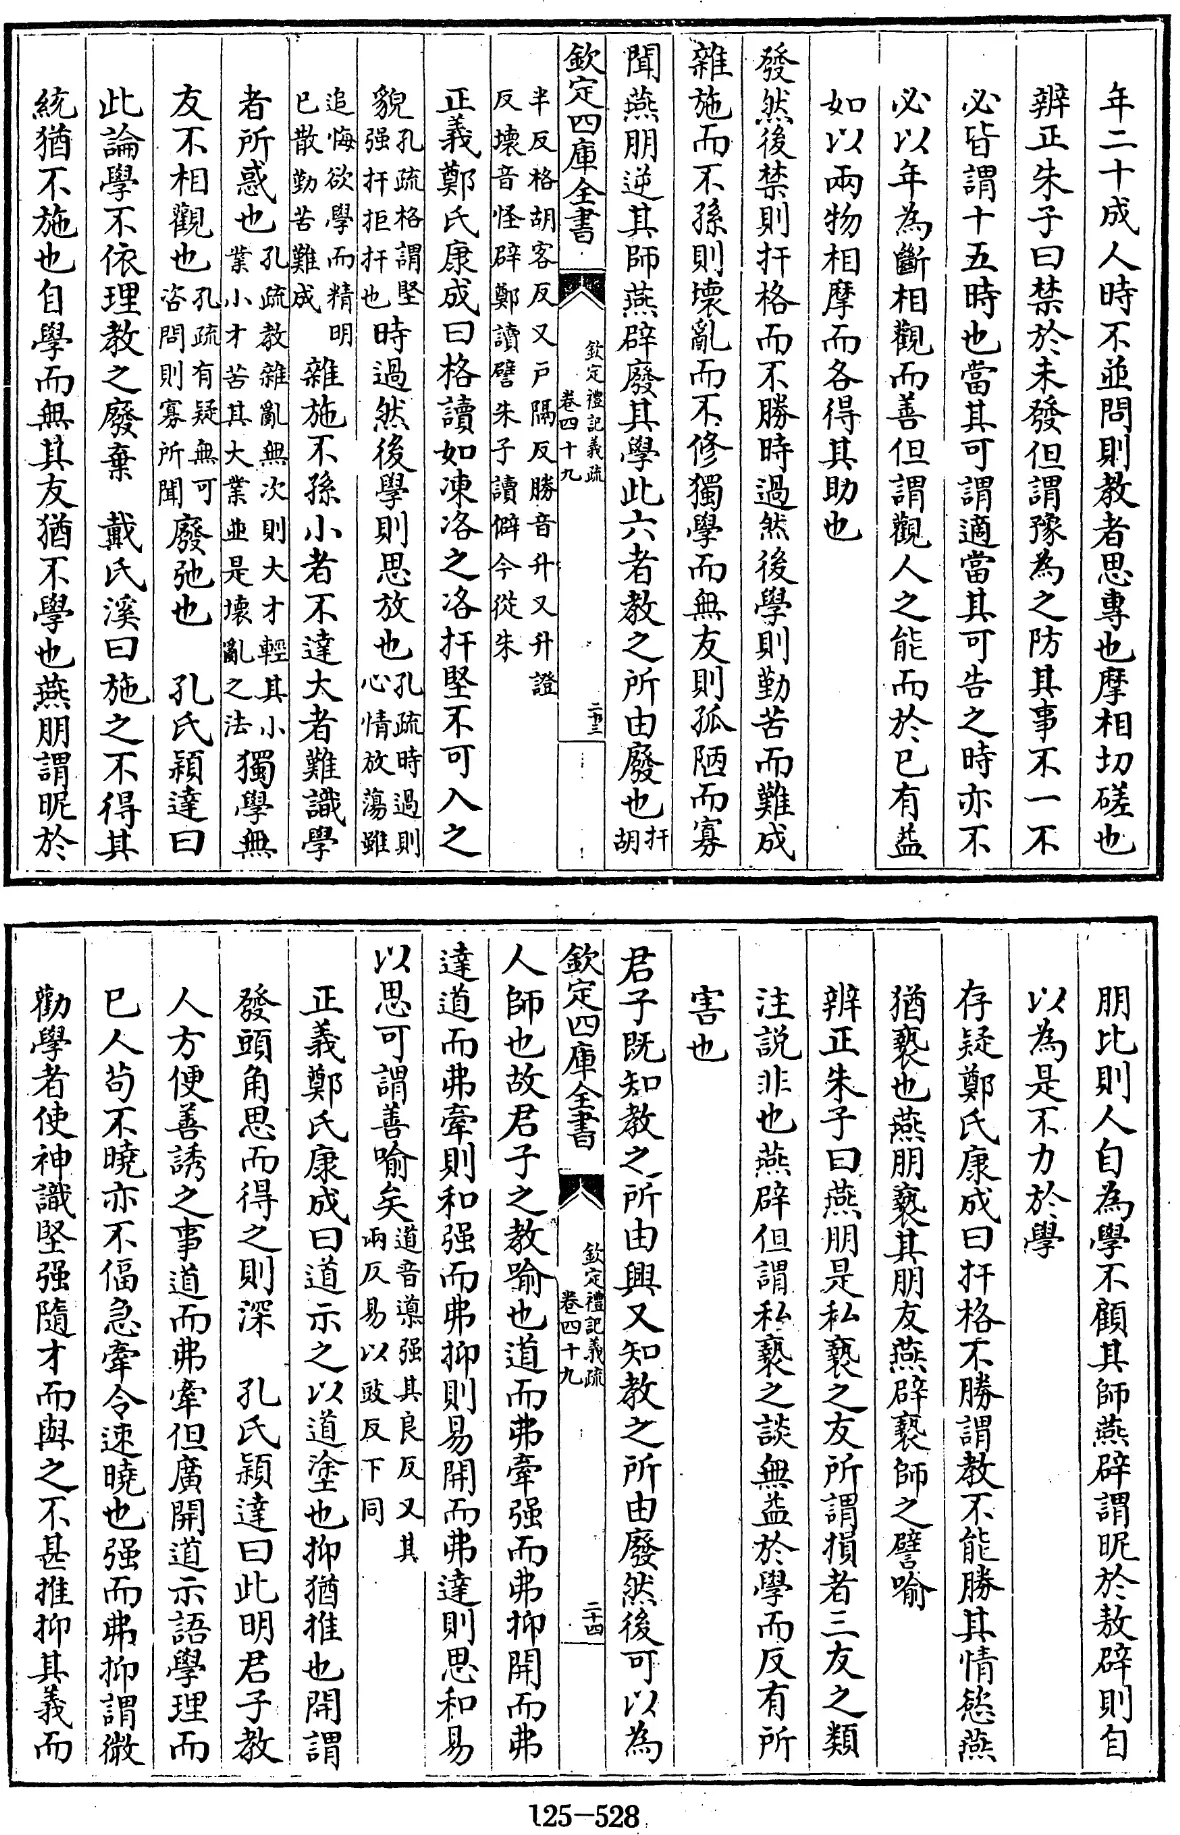 年二十成人時不並問則教者思專也摩相切磋也
辨正朱子曰禁於未發但謂豫為之防其事不一不
必皆謂十五時也當其可謂適當其可告之時亦不
必以年為斷相觀而善但謂觀人之能而於已有益
如以兩物相摩而各得其助也
發然後禁則扞格而不勝時過然後學則勤苦而難成
雜施而不孫則壞亂而不修獨學而無友則孤陋而寡
聞燕朋逆其師燕辟廢其學此六者教之所由廢也扞胡
欽定四庫全書
欽定禮記義疏
卷四十九
二十三
半反格胡客反又戶隔反勝音升又升證
反壞音怪辟鄭讀譬朱子讀僻今從朱
正義鄭氏康成曰格讀如凍洛之洛扞堅不可入之
貌孔疏格謂堅强扞拒扞也時過然後學則思放也孔疏時過則心情放蕩雖
追悔欲學而精明已散勤苦難成雜施不孫小者不達大者難識學
者所惑也孔疏教雜亂無次則大才輕其小業小才苦其大業並是壞亂之法獨學無
友不相觀也孔疏有疑無可咨問則寡所聞廢弛也 孔氏穎達曰
此論學不依理教之廢棄 戴氏溪曰施之不得其
統猶不施也自學而無其友猶不學也燕朋謂昵於
朋比則人自為學不顧其師燕辟謂昵於敖辟則自
以為是不力於學
存疑鄭氏康成曰扞格不勝謂教不能勝其情慾燕
猶褻也燕朋褻其朋友燕辟褻師之譬喻
辨正朱子曰燕朋是私褻之友所謂損者三友之類
注說非也燕辟但謂私褻之談無益於學而反有所
害也
君子既知教之所由興又知教之所由廢然後可以為
欽定四庫全書
欽定禮記義疏
卷四十九
二十四
人師也故君子之教喻也道而弗牽强而弗抑開而弗
達道而弗牽則和强而弗抑則易開而弗達則思和易
以思可謂善喻矣道音導强其良反又其兩反易以豉反下同
正義鄭氏康成曰道示之以道塗也抑猶推也開謂
發頭角思而得之則深 孔氏穎達曰此明君子教
人方便善誘之事道而弗牽但廣開道示語學理而
已人苟不曉亦不偪急牽令速曉也强而弗抑謂微
勸學者使神識堅强隨才而與之不甚推抑其義而
125-528